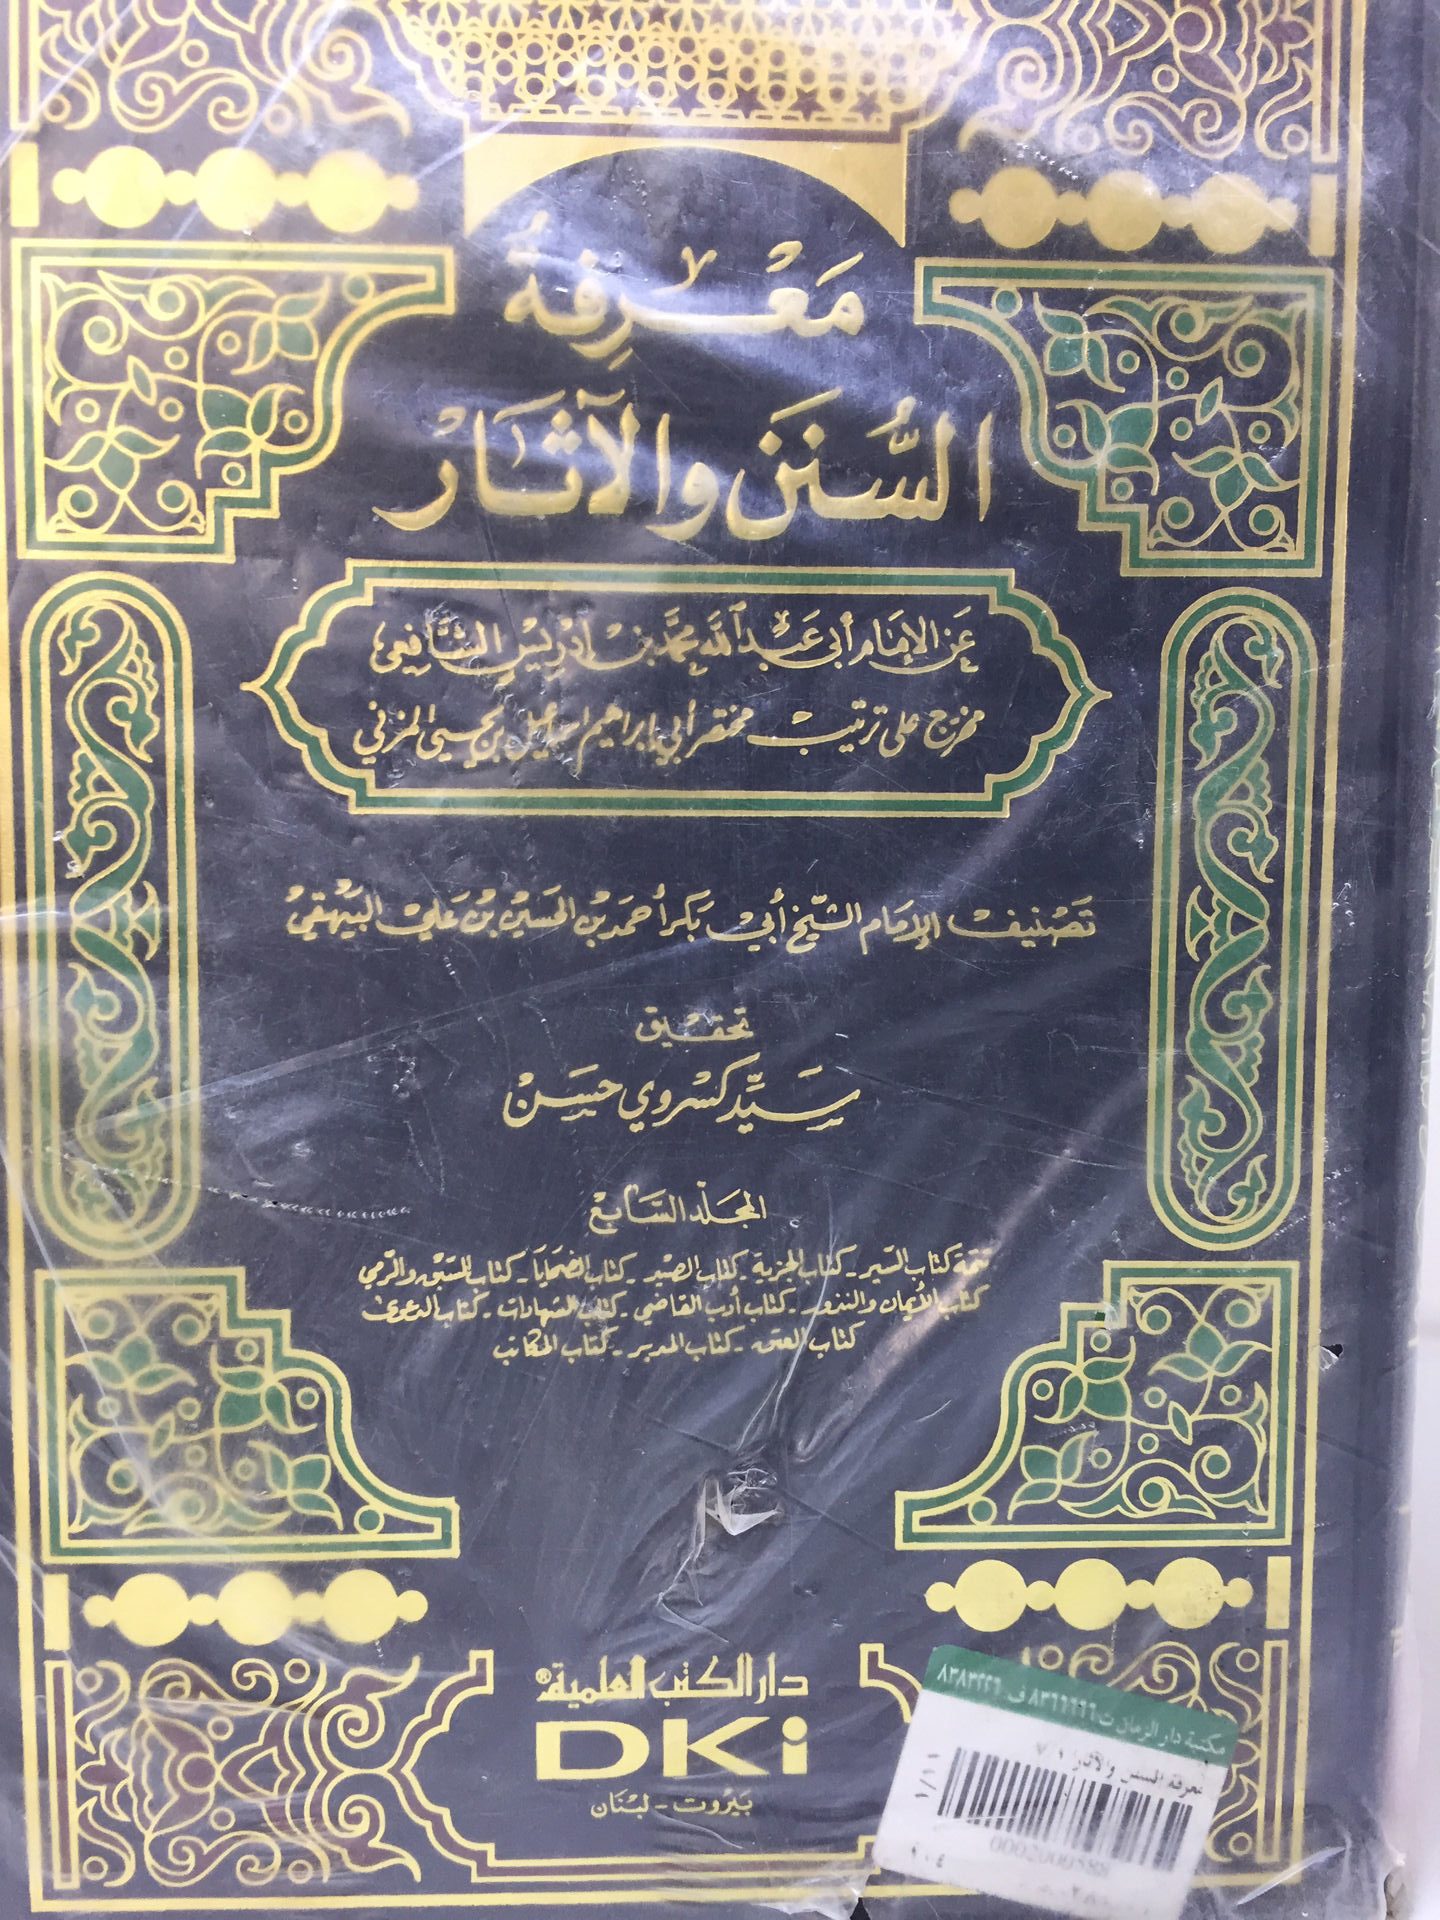 مَعْرِفَةُ
السُّنَنِ وَالآثَارِ
عَنِ الإِمَامِ أَبِي عَبْدِ اللهِ مُحَمَّدِ بْنِ إدْرِيسَ الشَّافِعِيِّ
مخرّج على ترتيب مختصر أبي إبراهيم إسماعيل بن يحيى المزني
تَصْنِيفُ الإِمَامِ الشَّيْخِ أَبِي بَكْرٍ أَحْمَد بْنِ الحسَيْنِ بْنِ عَلِيٍّ البَيْهَقِيِّ
تحقيق
سَيِّد كسْروي حسَنْ
المجلد السَّابع
تتمة كتاب السّير - كتاب الجزية - كتاب الصّيد - كتاب الضحايا - كتاب السّبق والرّمي
كتاب الأيمان والنذور - كتاب أدب القاضي - كتاب الشهادات - كتاب الدعوى
كتاب العتق - كتاب المدبر - كتاب المكاتب
دار الكتب العلمية®
DKi
بَيْروت - لبْنَان
مكتبة دار الزمان ت ٨٣٦٦٦٦٦ ف ٨٣٨٣٢٢٦
معرفة السنن والآثار ١/٧
١/١١